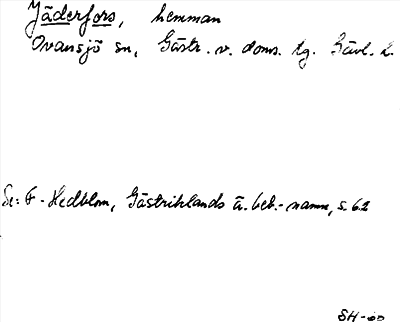 Jäderfors, hemman
Ovansjö sn, Gästr. v. doms. tg. Gävl. l.
Se: F. Hedblom, Gästriklands ä. beb.-namn, s. 62
SH-60